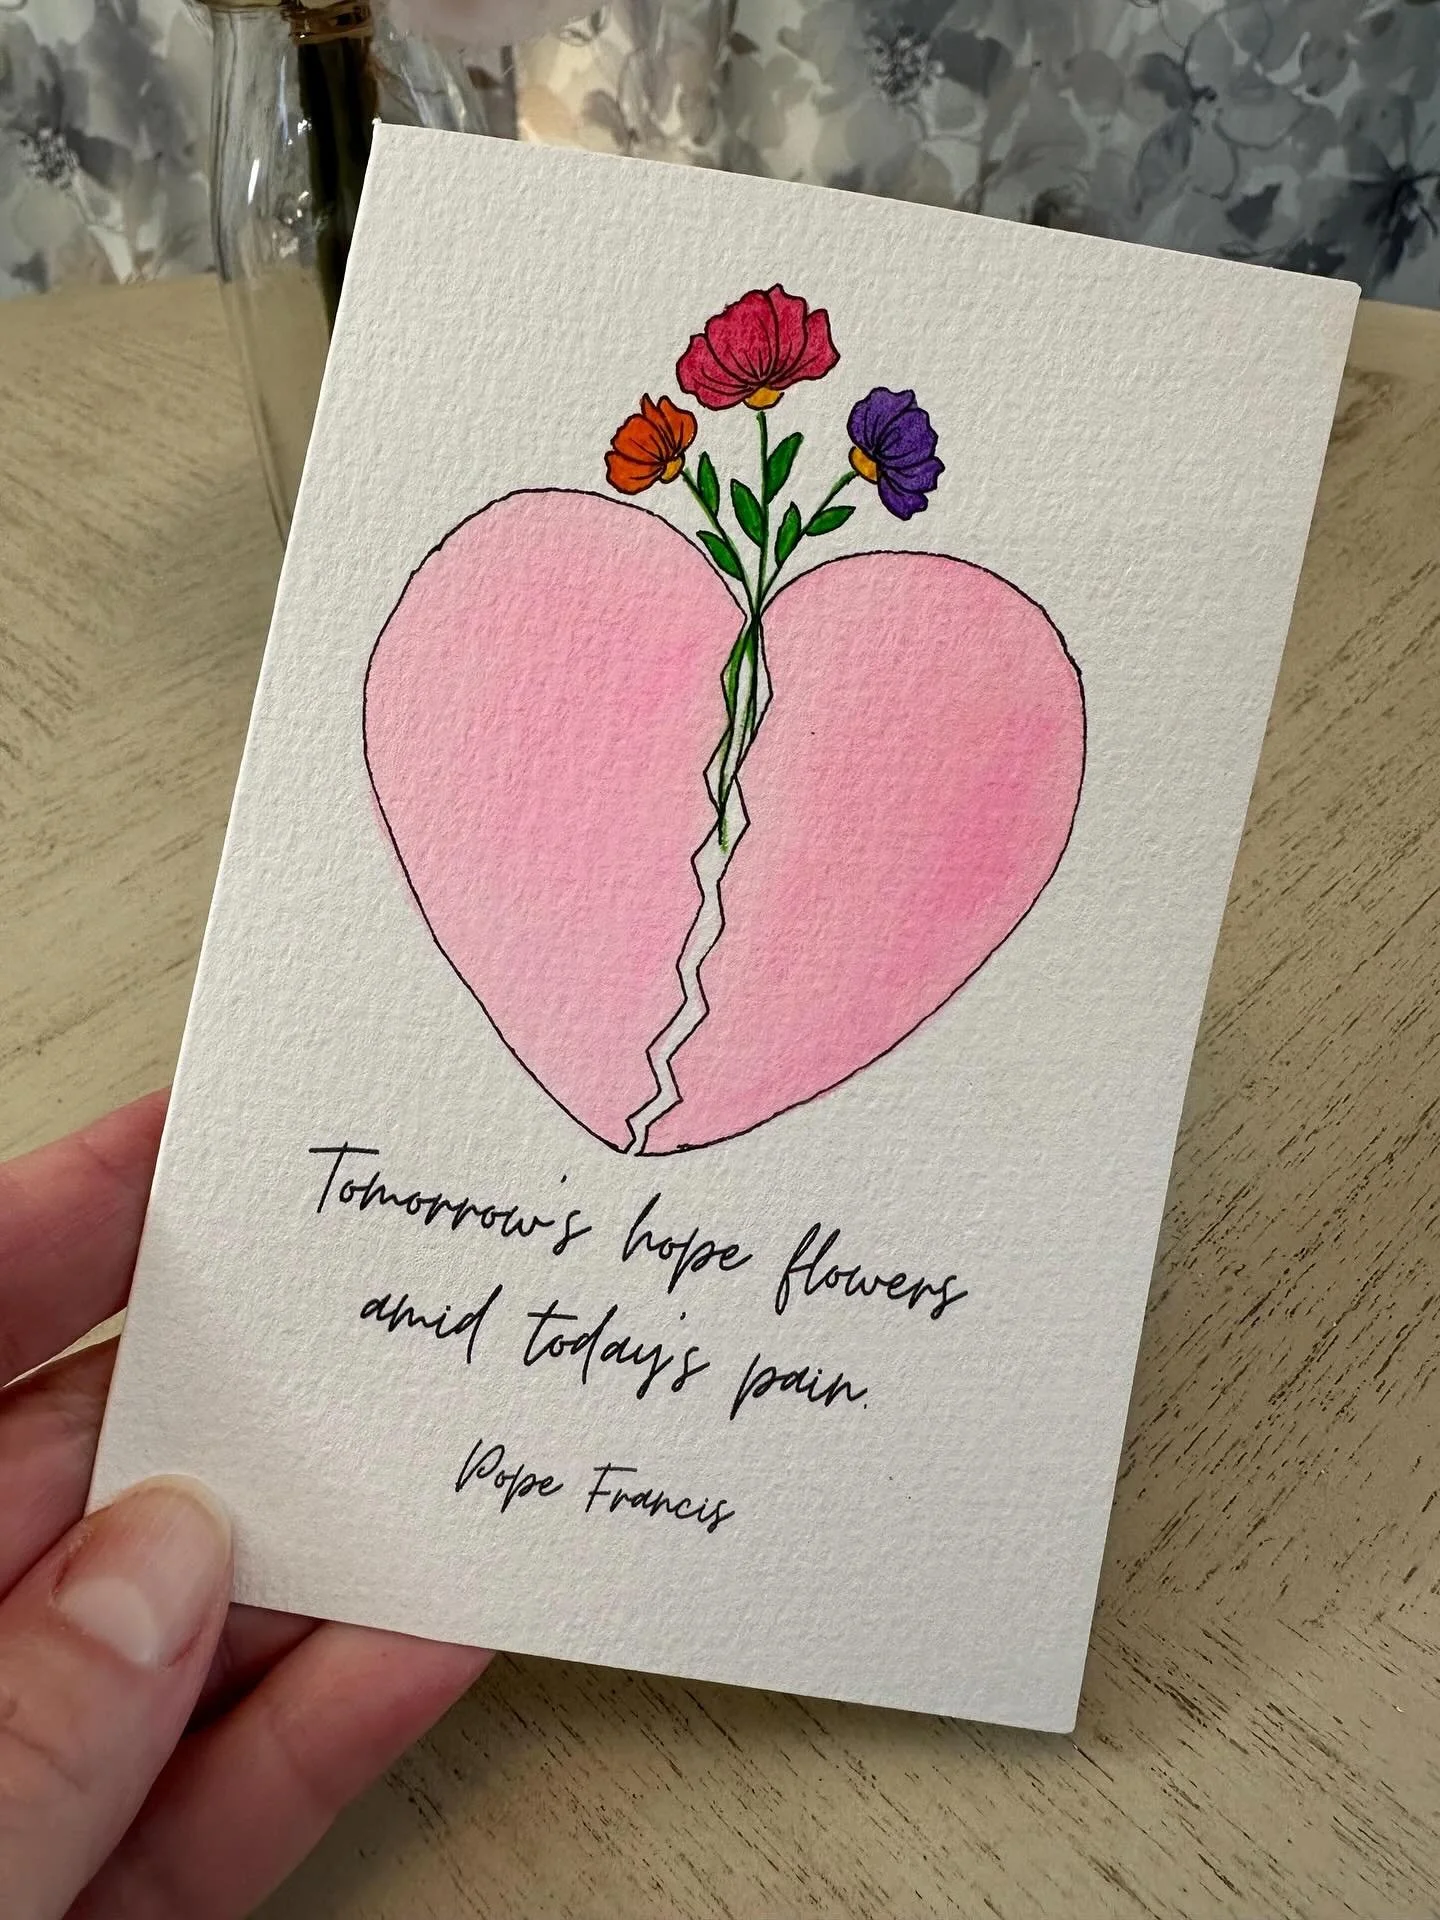 Tomorrow's hope flowers
amid today's pain.
Pope Francis